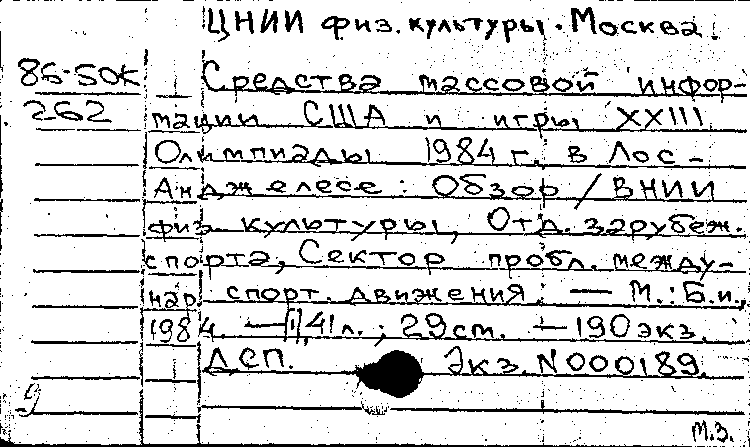 ЦНИИ физ. культуры. Москва.
86-50к Средства массовой инфор-
262 мации США и игры XXIII
Олимпиады 1984 г. в Лос-
Анджелесе: Обзор / ВНИИ
физ. культуры, Отд. зарубеж.
спорта, Сектор пробл. между-
нар. спорт. движения. — М.: Б.и.,
1984. — [1], 41 л.; 29 см. — 190 экз.
ДСП. Экз. N 000189.
9
М.З.